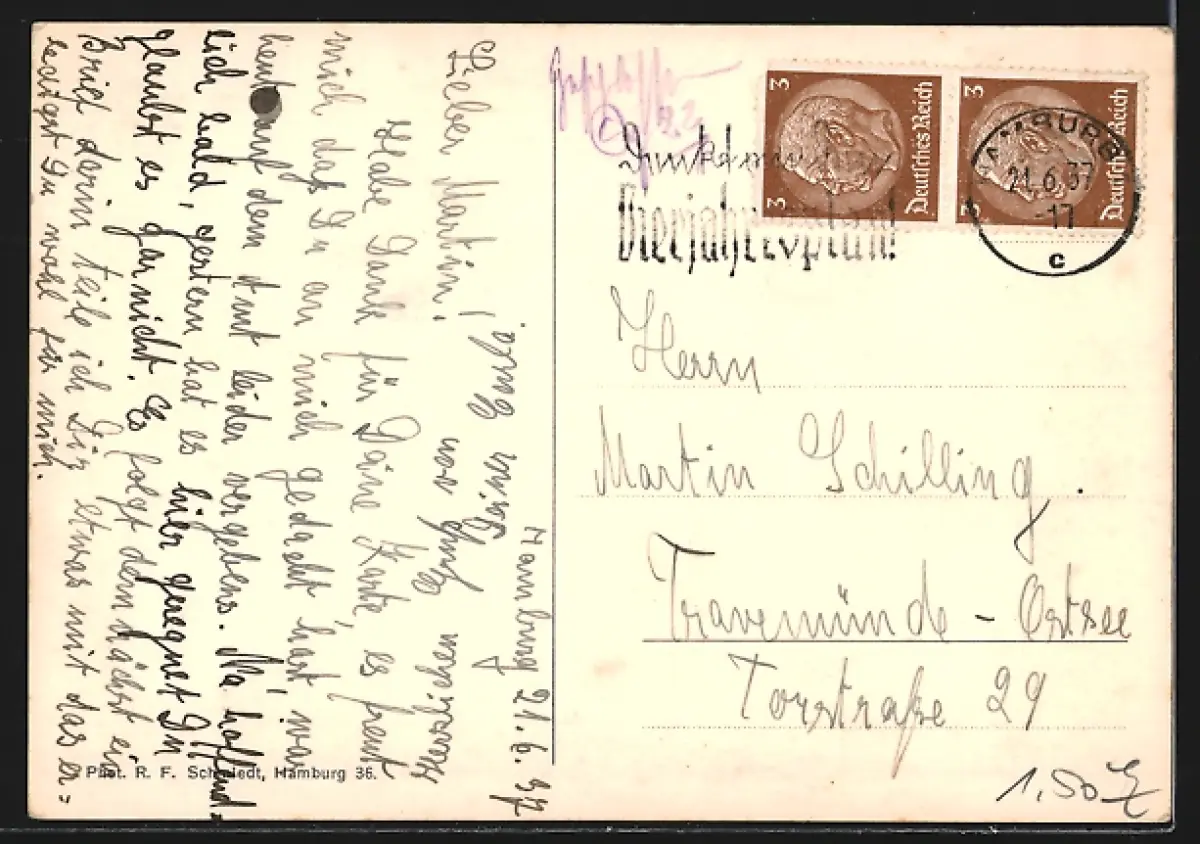 Hamburg 21.6.37
Lieber Martin!
Habe Dank für Deine Karte, es freut
mich daß Du an mich gedacht hast war
heut auf dem Amt leider vergebens. Na hoffend-
lich bald, gestern hat es hier geregnet Du
glaubst es garnicht. Es folgt demnächst ein
Brief darin teile ich Dir etwas mit das er=
ledigst Du wohl für mich.
Herzlichen Gruß von
Phot. R. F. Schmiedt, Hamburg 36.
22
Vierjahresplan!
3
3
Deutsches Reich
3
3
Deutsches Reich
HAMBURG
21.6.37
-17
c
Herrn
Martin Schilling.
Travemünde - Ostsee
Torstraße 29
1,50